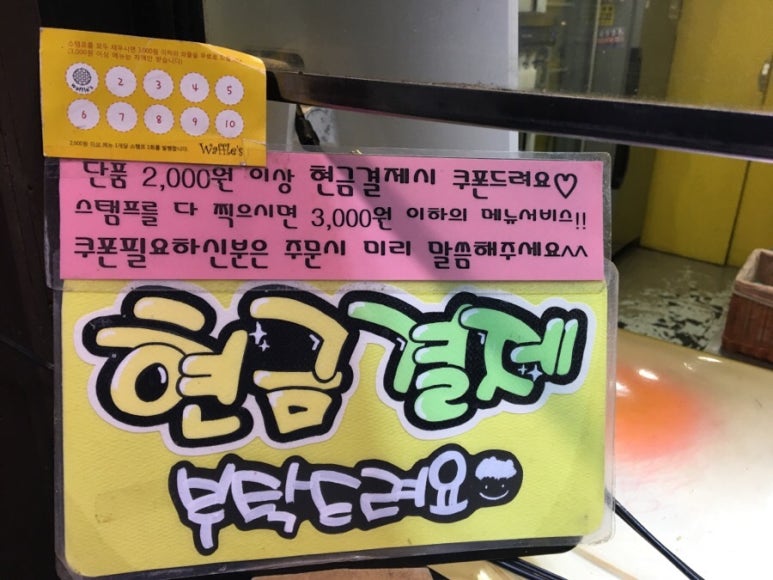 스탬프를 모두 채우시면 3,000원 이하의 와플을 무료로
(3,000원 이상 메뉴는 차액만 받습니다)
Waffle's 2 3 4 5
6 7 8 9 10
2,000원 이상 메뉴 1개당 스탬프 1회를 찍어드립니다.
Waffle's
단품 2,000원 이상 현금결제시 쿠폰드려요♡
스탬프를 다 찍으시면 3,000원 이하의 메뉴서비스!!
쿠폰필요하신분은 주문시 미리 말씀해주세요^^
현금결제
부탁드려요